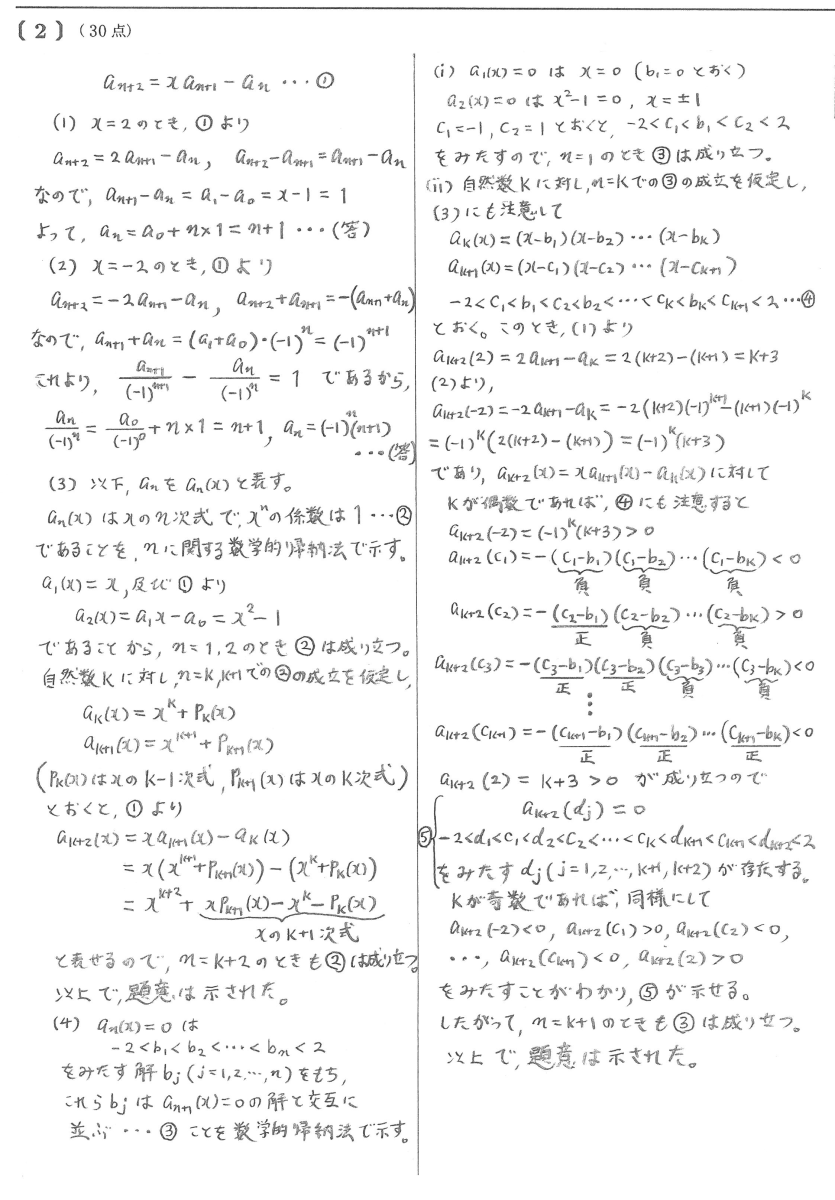 〔2〕(30点)
a_{n+2} = x a_{n+1} − a_n ・・・①
(1) x=2のとき,①より
a_{n+2} = 2a_{n+1} − a_n , a_{n+2} − a_{n+1} = a_{n+1} − a_n
なので, a_{n+1} − a_n = a_1 − a_0 = x−1 = 1
よって, a_n = a_0 + n×1 = n+1 ・・・(答)
(2) x=−2のとき,①より
a_{n+2} = −2a_{n+1} − a_n , a_{n+2} + a_{n+1} = −(a_{n+1} + a_n)
なので, a_{n+1} + a_n = (a_1 + a_0)・(−1)^n = (−1)^{n+1}
これより, a_{n+1}/(−1)^{n+1} − a_n/(−1)^n = 1 であるから,
a_n/(−1)^n = a_0/(−1)^0 + n×1 = n+1 , a_n = (−1)^n(n+1)
・・・(答)
(3) 以下, a_nをa_n(x)と表す。
a_n(x)はxのn次式で,x^nの係数は1・・・②
であることを,nに関する数学的帰納法で示す。
a_1(x) = x,及び①より
a_2(x) = a_1x − a_0 = x²−1
であることから,n=1,2のとき②は成り立つ。
自然数kに対し,n=k,k+1での②の成立を仮定し,
a_k(x) = x^k + P_k(x)
a_{k+1}(x) = x^{k+1} + P_{k+1}(x)
(P_k(x)はxのk−1次式,P_{k+1}(x)はxのk次式)
とおくと,①より
a_{k+2}(x) = x a_{k+1}(x) − a_k(x)
= x(x^{k+1} + P_{k+1}(x)) − (x^k + P_k(x))
= x^{k+2} + xP_{k+1}(x) − x^k − P_k(x)
xのk+1次式
と表せるので,n=k+2のときも②は成り立つ。
以上で,題意は示された。
(4) a_n(x)=0は
−2<b_1<b_2<・・・<b_n<2
をみたす解b_j(j=1,2,…,n)をもち,
これらb_jはa_{n+1}(x)=0の解と交互に
並ぶ・・・③ことを数学的帰納法で示す。
(i) a_1(x)=0は x=0 (b_1=0とおく)
a_2(x)=0は x²−1=0, x=±1
c_1=−1, c_2=1とおくと, −2<c_1<b_1<c_2<2
をみたすので,n=1のとき③は成り立つ。
(ii) 自然数kに対し,n=kでの③の成立を仮定し,
(3)にも注意して
a_k(x) = (x−b_1)(x−b_2)・・・(x−b_k)
a_{k+1}(x) = (x−c_1)(x−c_2)・・・(x−c_{k+1})
−2<c_1<b_1<c_2<b_2<・・・<c_k<b_k<c_{k+1}<2・・・④
とおく。このとき,(1)より
a_{k+2}(2) = 2a_{k+1} − a_k = 2(k+2)−(k+1) = k+3
(2)より,
a_{k+2}(−2) = −2a_{k+1} − a_k = −2(k+2)(−1)^{k+1} − (k+1)(−1)^k
= (−1)^k(2(k+2)−(k+1)) = (−1)^k(k+3)
であり, a_{k+2}(x) = x a_{k+1}(x) − a_k(x)に対して
kが偶数であれば,④にも注意すると
a_{k+2}(−2) = (−1)^k(k+3) > 0
a_{k+2}(c_1) = −(c_1−b_1)(c_1−b_2)・・・(c_1−b_k) < 0
負 負 負
a_{k+2}(c_2) = −(c_2−b_1)(c_2−b_2)・・・(c_2−b_k) > 0
正 負 負
a_{k+2}(c_3) = −(c_3−b_1)(c_3−b_2)(c_3−b_3)・・・(c_3−b_k) < 0
正 正 負 負
⋮
a_{k+2}(c_{k+1}) = −(c_{k+1}−b_1)(c_{k+1}−b_2)・・・(c_{k+1}−b_k) < 0
正 正 正
a_{k+2}(2) = k+3 > 0 が成り立つので
a_{k+2}(d_j) = 0
⑤ −2<d_1<c_1<d_2<c_2<・・・<c_k<d_{k+1}<c_{k+1}<d_{k+2}<2
をみたすd_j(j=1,2,…,k+1,k+2)が存在する。
kが奇数であれば,同様にして
a_{k+2}(−2)<0, a_{k+2}(c_1)>0, a_{k+2}(c_2)<0,
・・・, a_{k+2}(c_{k+1})<0, a_{k+2}(2)>0
をみたすことがわかり,⑤が示せる。
したがって,n=k+1のときも③は成り立つ。
以上で,題意は示された。